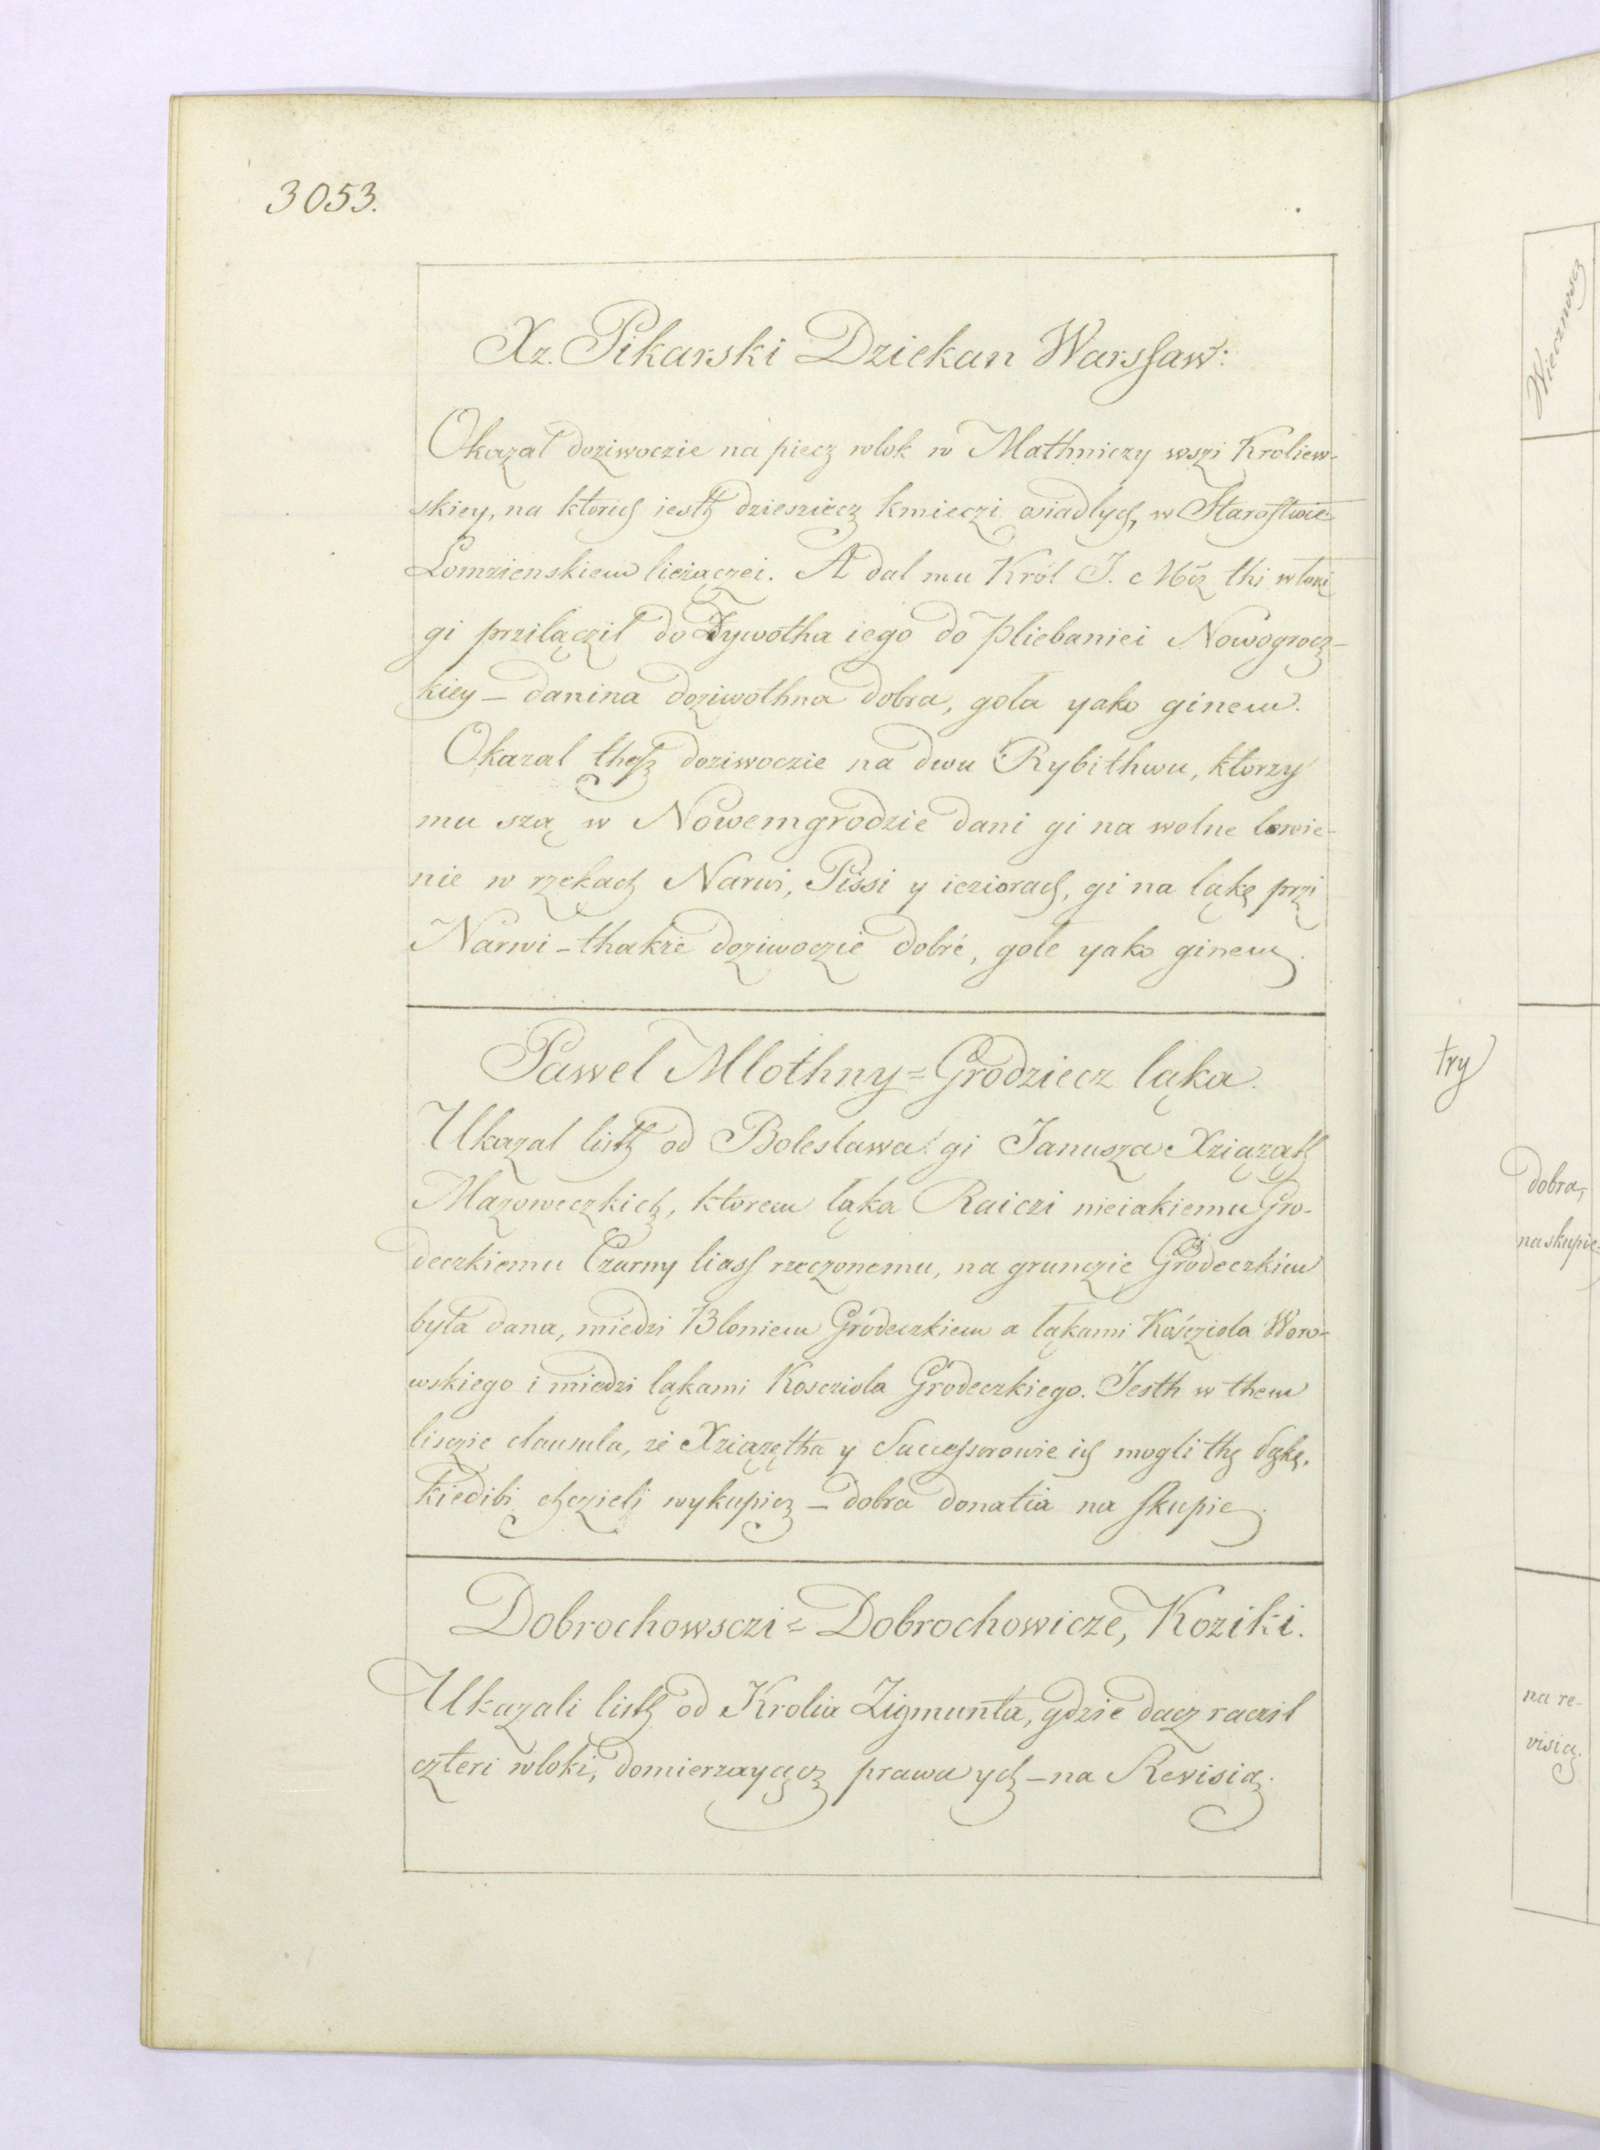 3053.
Xz. Pikarski Dziekan Warssaw:
Okazał doziwoczie na piecz wlok w Mathniczy wszi Kroliew-
skiey, na ktorich iesth dziesziecz kmieczi osiadlych, w Starostwie
Lomzienskiem lieżączei. A dal mu Król J. Mcz thi wloki
gi prziłączil do Żywotha iego do pliebaniei Nowogrocz-
kiey – danina doziwothna dobra, gola yako ginem.
Okazal thesz doziwoczie na dwu Rybithwu, ktorzy
mu szą w Nowemgrodzie dani gi na wolne lowie-
nie w rzekach Narwi, Pissi y ieziorach, gi na ląkę przi
Narwi – thakze doziwoczie dobré, gole yako ginem.
Pawel Mlothny = Grodziecz ląka.
Ukazal listh od Boleslawa gi Janusza Xziąząth
Mazoweczkich, ktorem ląka Raiczi nieiakiemu Gro-
deczkiemu Czarny liass rzeczonemu, na grunczie Grodeczkim
była dana, miedzi Bloniem Gródeczkiem a łąkami Kośczioła Woro-
wskiego i miedzi ląkami Koscziola Grodeczkiego. Jesth w them
lisczie clausula, że Xziązętha y Successorowie ich mogli thę ląkę,
kiedibi chczieli wykupicz – dobra donatia na skupie.
Dobrochowsczi = Dobrochowicze, Koziki.
Ukazali listh od Krolia Zigmunta, gdzie dacz raczil
czteri wloki, domierzayącz prawa ych – na Revisią.
Wiecznoscz
try
dobra,
na skupie
na re-
visią.